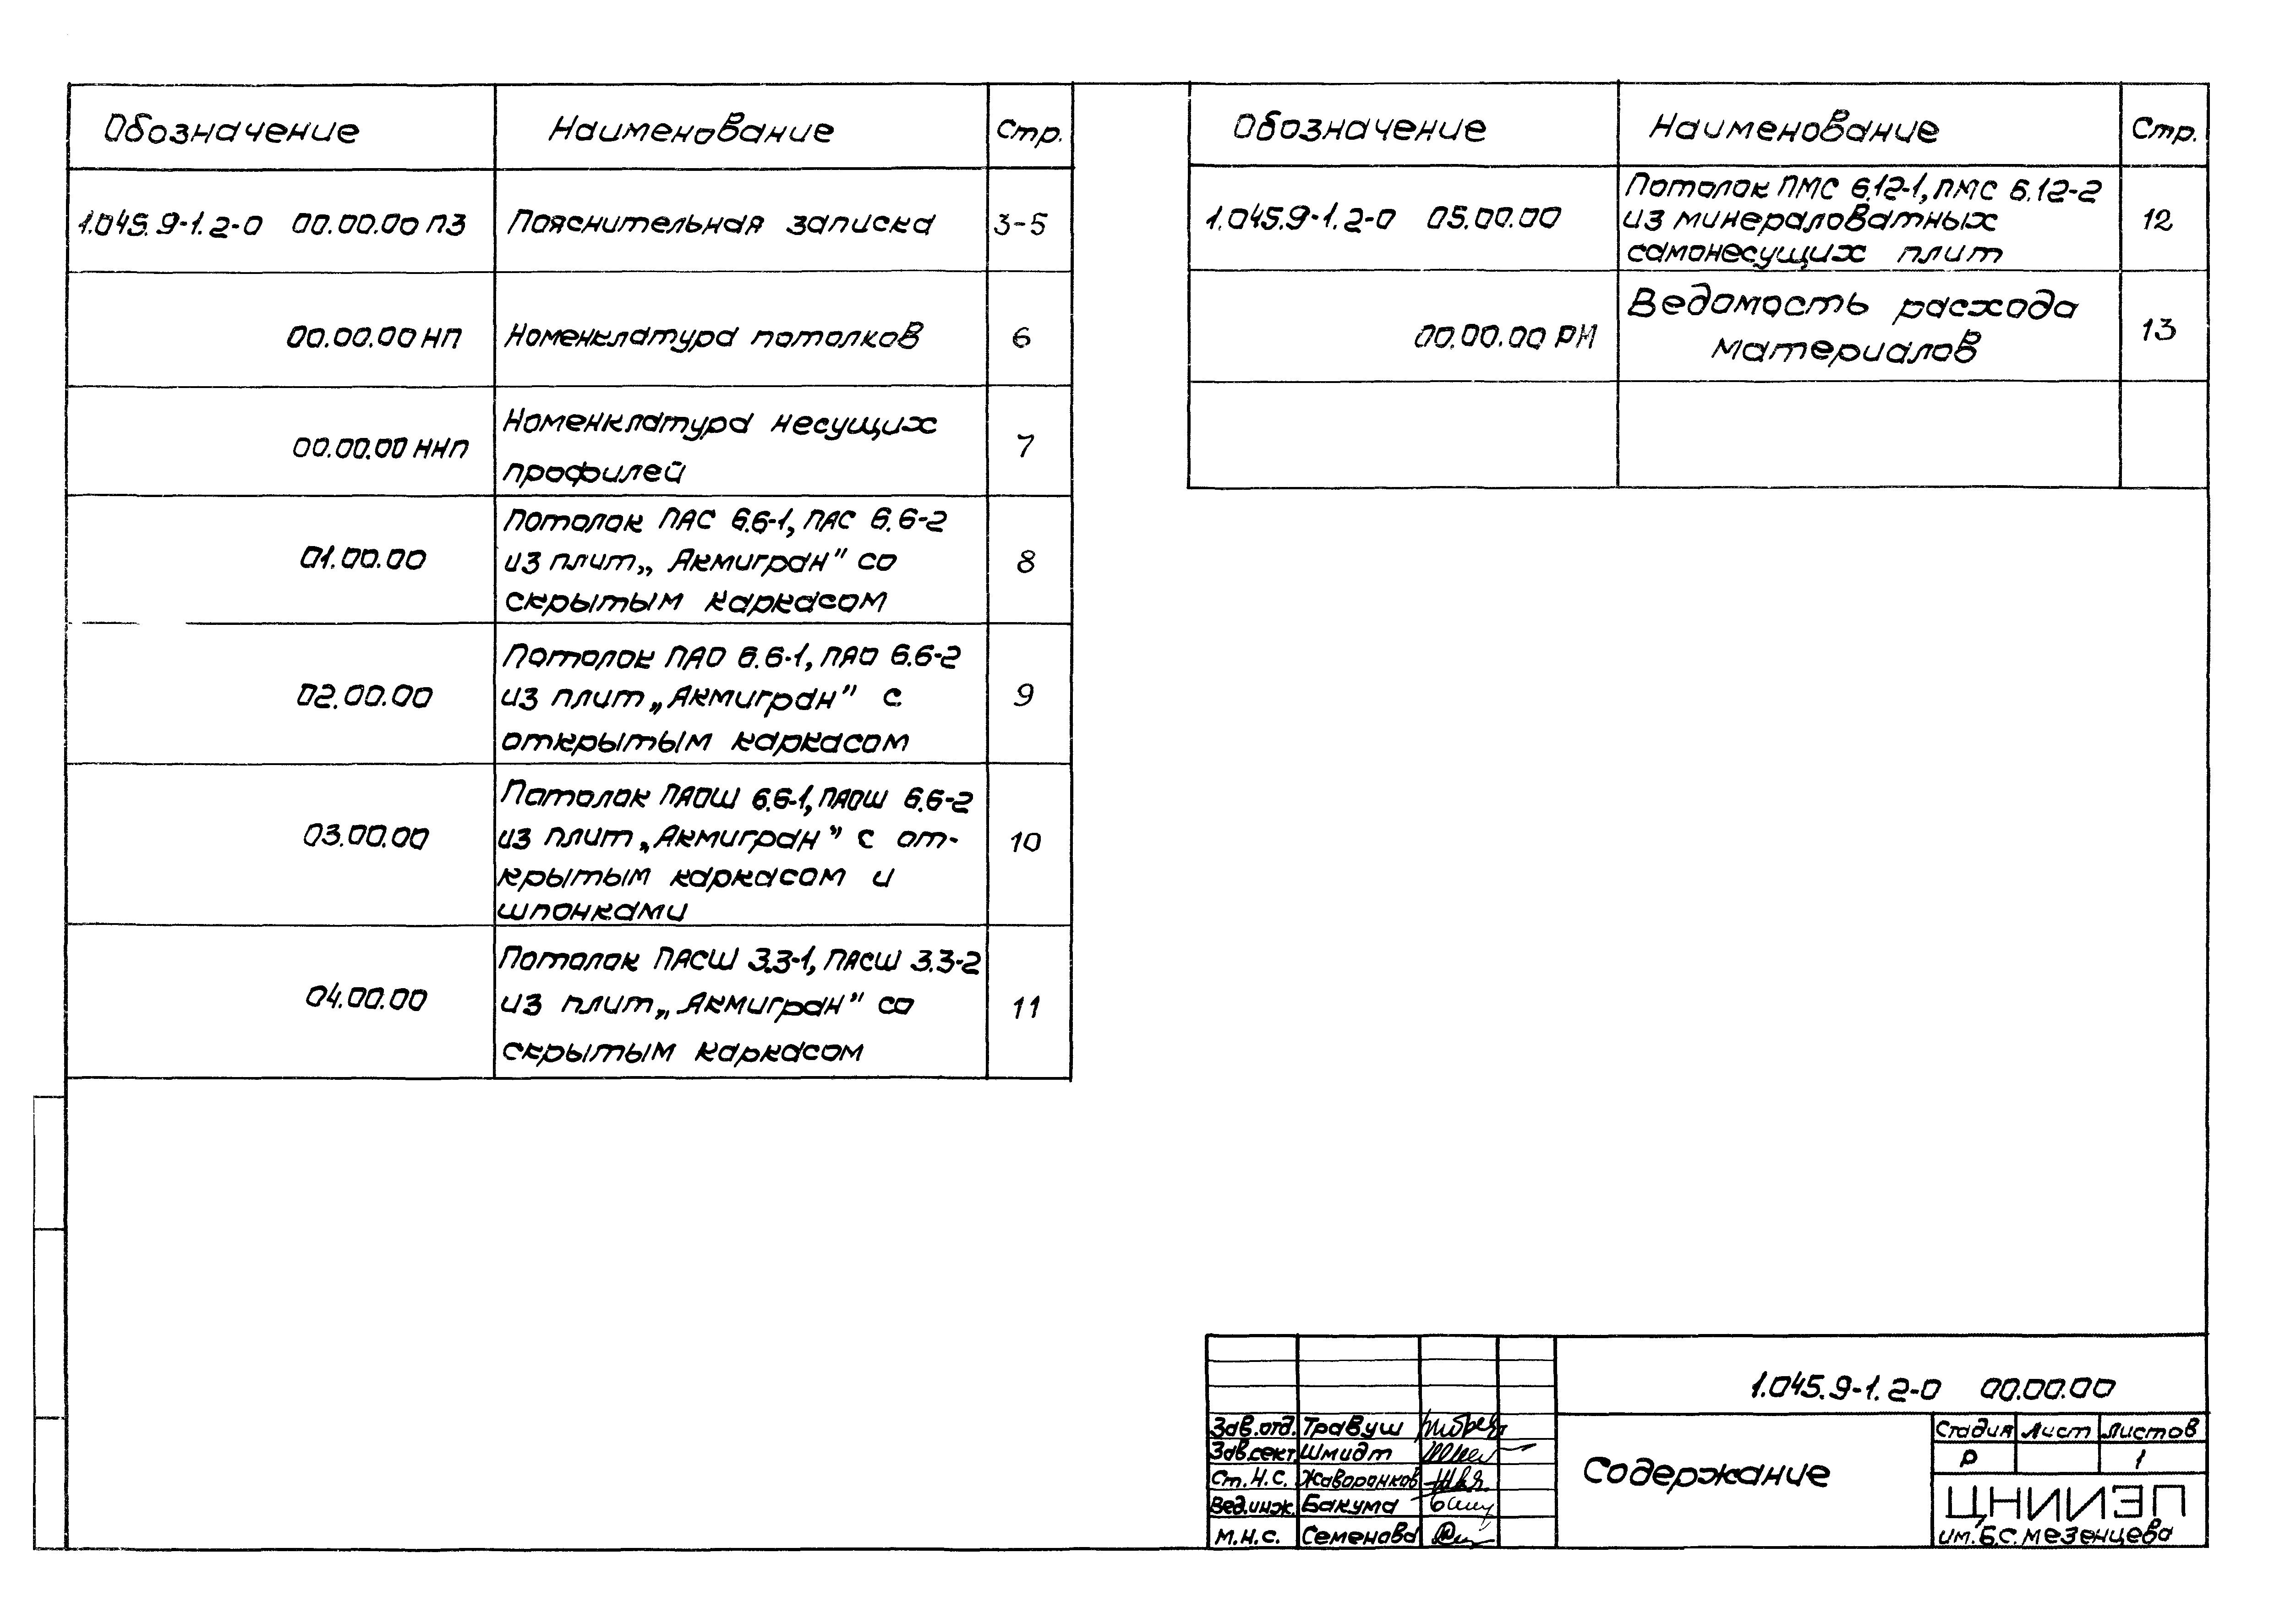 Обозначение Наименование Стр.
1.045.9-1.2-0 00.00.00 ПЗ Пояснительная записка 3-5
00.00.00 НП Номенклатура потолков 6
00.00.00 ННП Номенклатура несущих
профилей 7
Потолок ПАС 6.6-1, ПАС 6.6-2
01.00.00 из плит „Акмигран" со 8
скрытым каркасом
Потолок ПАО 6.6-1, ПАО 6.6-2
02.00.00 из плит „Акмигран" с 9
открытым каркасом
Потолок ПАОШ 6.6-1, ПАОШ 6.6-2
03.00.00 из плит „Акмигран" с от- 10
крытым каркасом и
шпонками
Потолок ПАСШ 3.3-1, ПАСШ 3.3-2
04.00.00 из плит „Акмигран" со 11
скрытым каркасом
Обозначение Наименование Стр.
Потолок ПМС 6.12-1, ПМС 6.12-2
1.045.9-1.2-0 05.00.00 из минераловатных 12
самонесущих плит
00.00.00 РМ Ведомость расхода 13
материалов
1.045.9-1.2-0 00.00.00
Зав.отд. Травуш
Зав.сект. Шмидт
Ст.Н.С. Жаворонков
Вед.инж. Бакума
М.Н.С. Семенова
Содержание
Стадия Лист Листов
Р 1
ЦНИИЭП
им. Б.С. Мезенцева